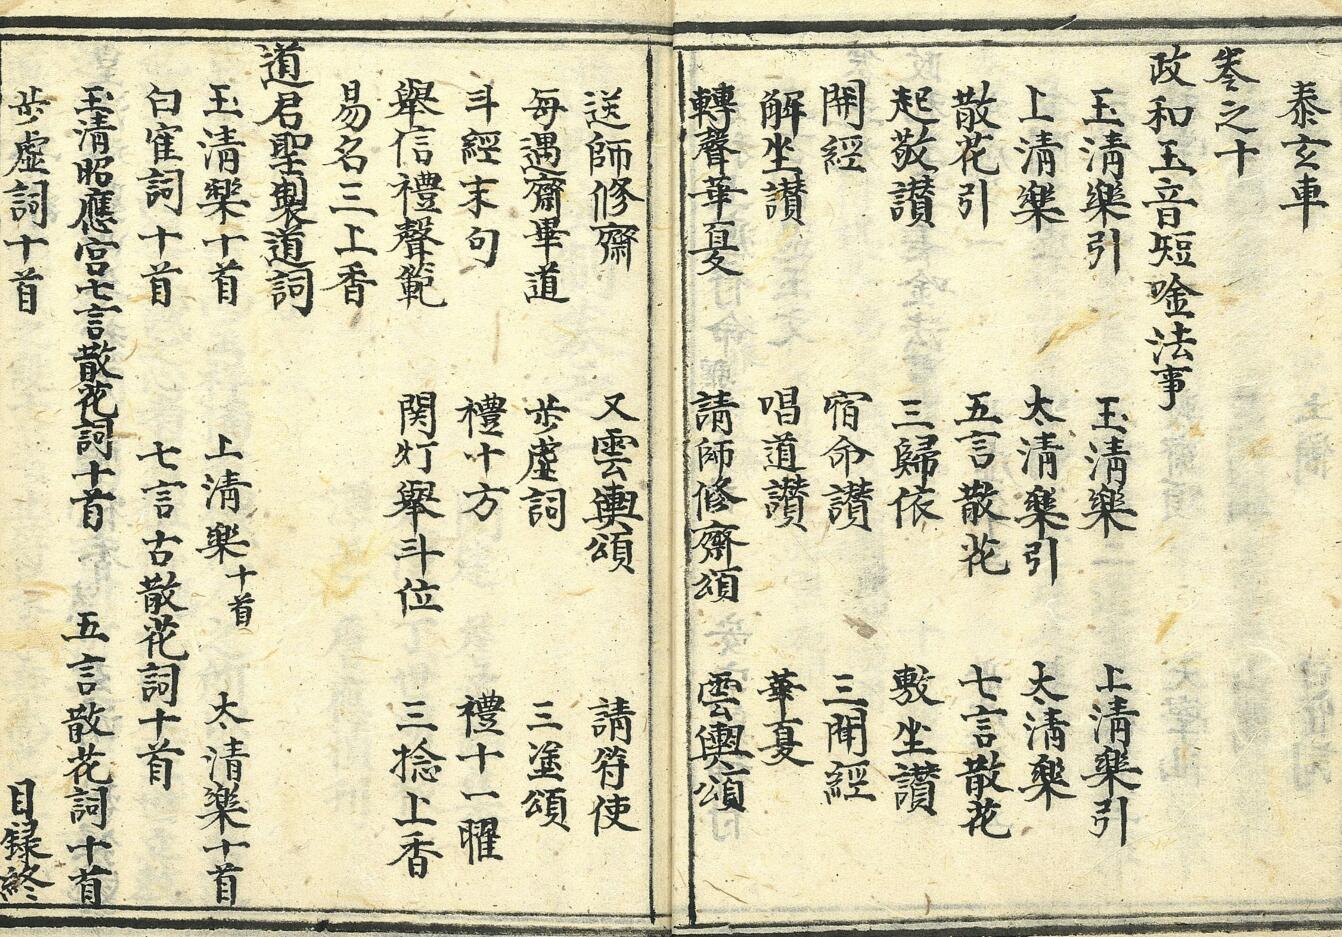 泰玄車
卷之十
政和玉音短唫法事
玉清樂引　玉清樂　上清樂引
上清樂　太清樂引　太清樂
散花引　五言散花　七言散花
起敬讃　三歸依　敷坐讃
開經　宿命讃　三聞經
解坐讃　唱道讃　華夏
轉聲華夏　請師修齋頌　雲輿頌
送師修齋　又雲輿頌　請符使
每遇齋畢道　步虛詞　三塗頌
斗經末句　禮十方　禮十一曜
舉信禮聲範　関灯舉斗位　三捻上香
易名三上香
道君聖製道詞
玉清樂十首　上清樂十首　太清樂十首
白隺詞十首　七言古散花詞十首
玉清昭應宮七言散花詞十首　五言散花詞十首
步虛詞十首　目録終